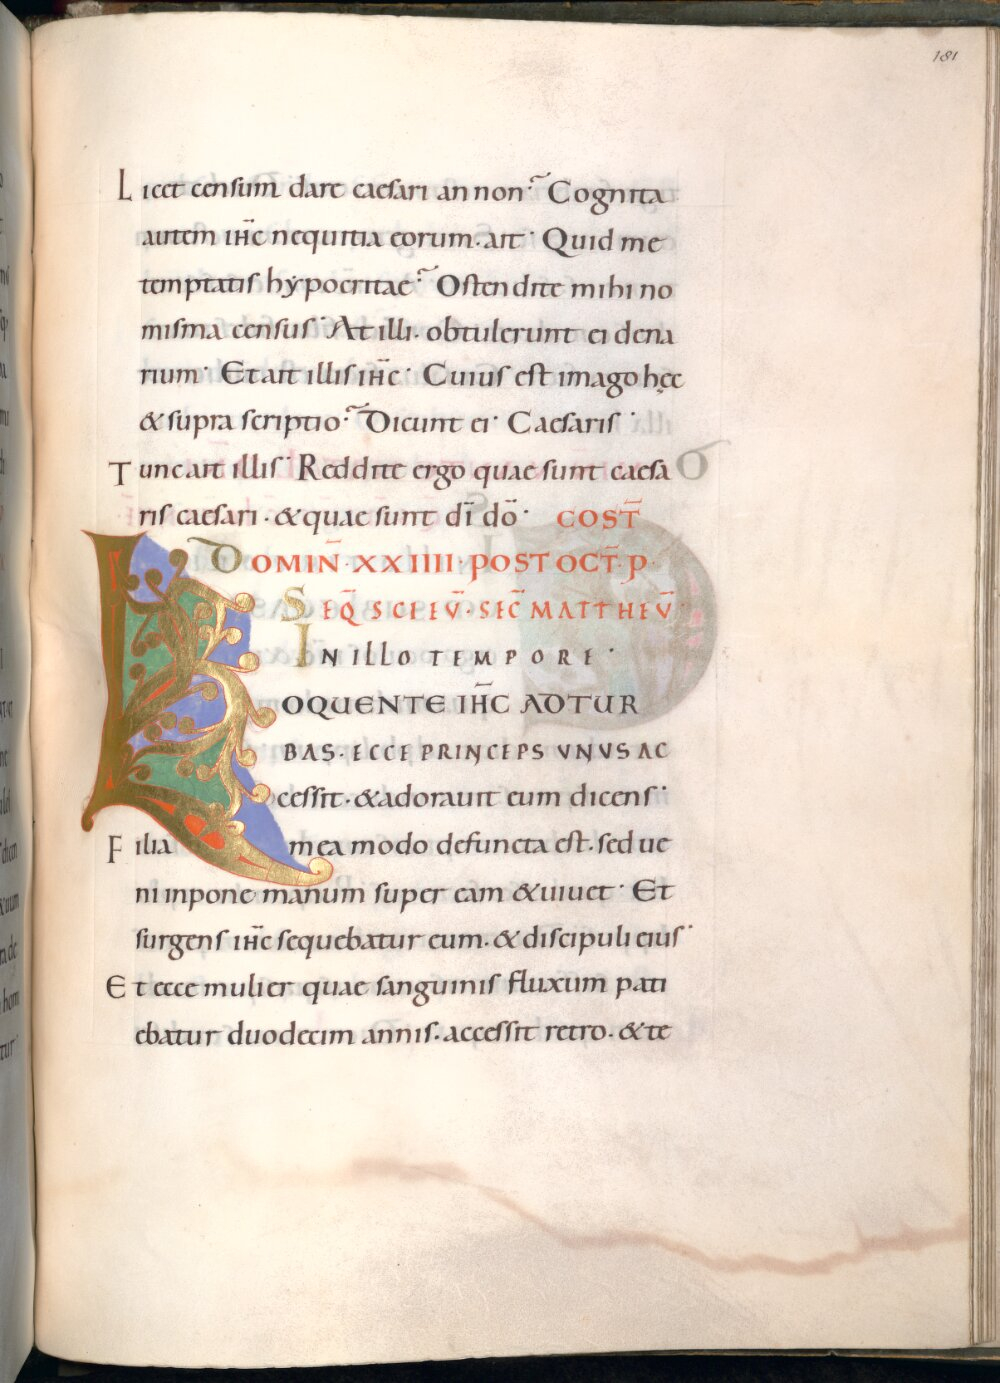 181
Licet censum dare caesari an non? Cognita
autem ihc̄ nequitia eorum. ait· Quid me
temptatis hypocritae? Ostendite mihi no
misma census· At illi. obtulerunt ei dena
rium· Et ait illis ihc̄· Cuius est imago hęc
& supra scriptio? Dicunt ei· Caesaris·
Tunc ait illis· Reddite ergo quae sunt caesa
ris caesari. & quae sunt dī dō· COST̄
DOMIN̄·XXIIII·POST OCT̄·P·
SEQ̄ SCI EV̄·SEC̄ MATTHEV̄·
IN ILLO TEMPORE·
LOQUENTE IHC̄ AD TUR
BAS·ECCE PRINCEPS VNUS AC
cessit·& adorauit eum dicens·
Filia mea modo defuncta est. sed ue
ni inpone manum super eam & uiuet· Et
surgens ihc̄ sequebatur eum.& discipuli eius·
Et ecce mulier quae sanguinis fluxum pati
ebatur duodecim annis. accessit retro. & te